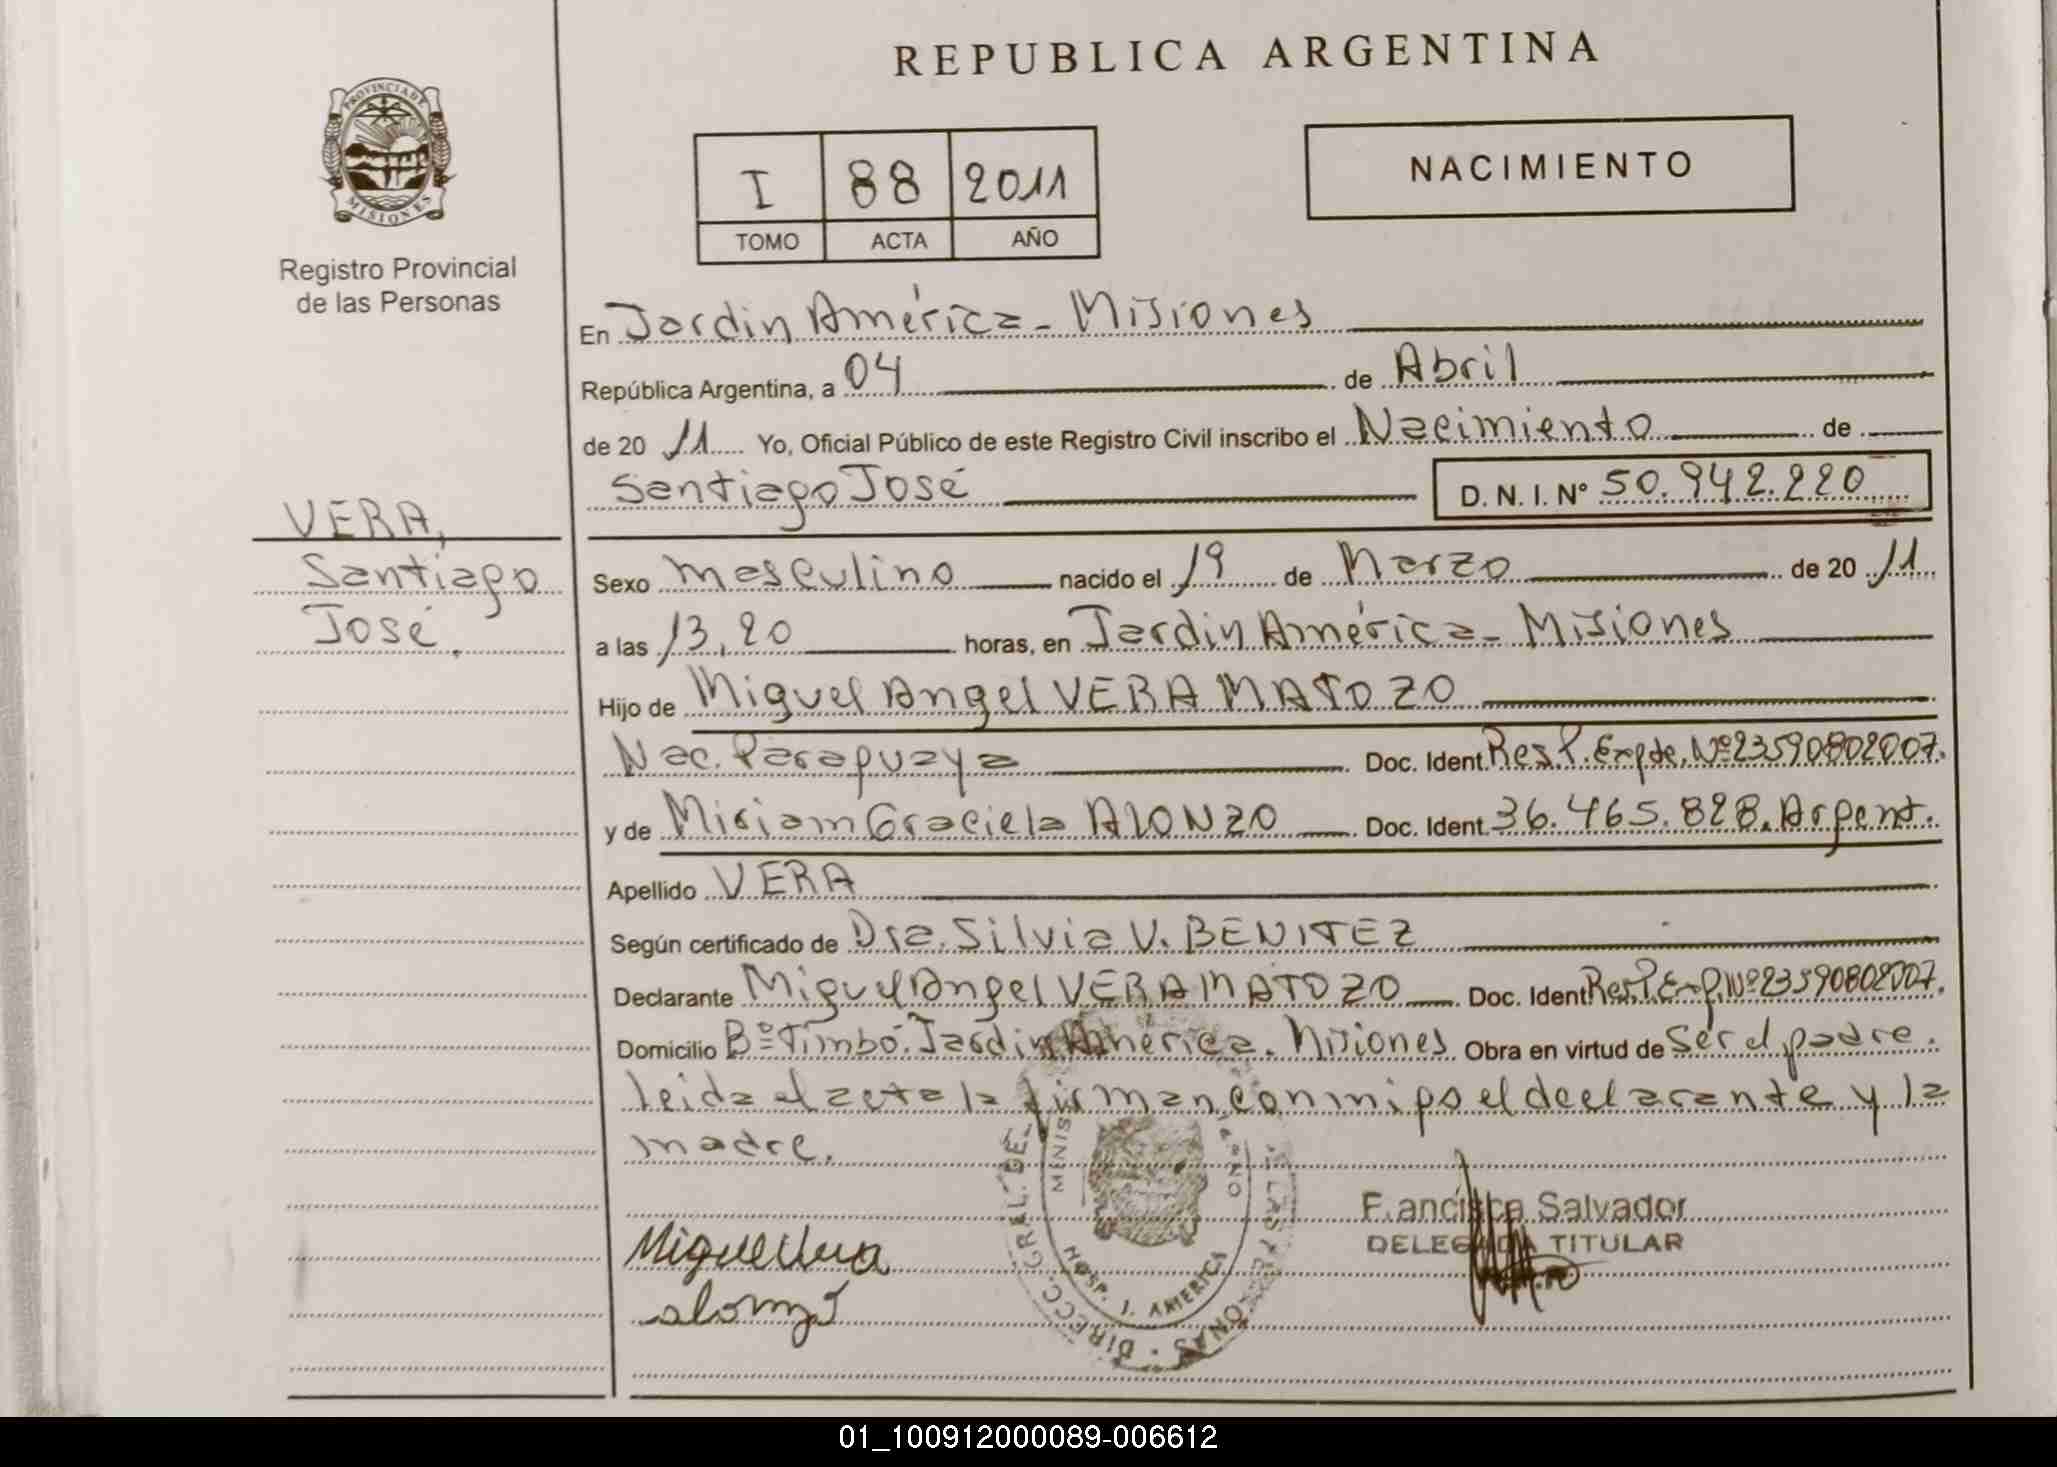 REPUBLICA ARGENTINA
PROVINCIA DE
MISIONES
Registro Provincial
de las Personas
I 88 2011
TOMO ACTA AÑO
NACIMIENTO
En Jardin América - Misiones
República Argentina, a 04 de Abril
de 20 11 Yo, Oficial Público de este Registro Civil inscribo el Nacimiento de
Santiago José D. N. I. Nº 50.942.220
VERA,
Santiago
José.
Sexo masculino nacido el 19 de Marzo de 20 11
a las 13,20 horas, en Jardin América - Misiones
Hijo de Miguel Angel VERA MATOZO
Nac. Paraguaya Doc. Ident. Res. P. Expde. Nº 23590802007.
y de Miriam Graciela ALONZO Doc. Ident. 36.465.828. Argent.
Apellido VERA
Según certificado de Dra. Silvia V. BENITEZ
Declarante Miguel Angel VERA MATOZO Doc. Ident Res. P. Exp. Nº 23590802007.
Domicilio Bº Timbó. Jardin América. Misiones Obra en virtud de Ser el padre.
leida el acta la firman conmigo el declarante y la
madre.
Francisca Salvador
DELEGADA TITULAR
Miguel Vera
alonzo
DIRECC. GRAL. DE LAS PERSONAS
MINIS
HOSP. J. AMERICA
01_100912000089-006612